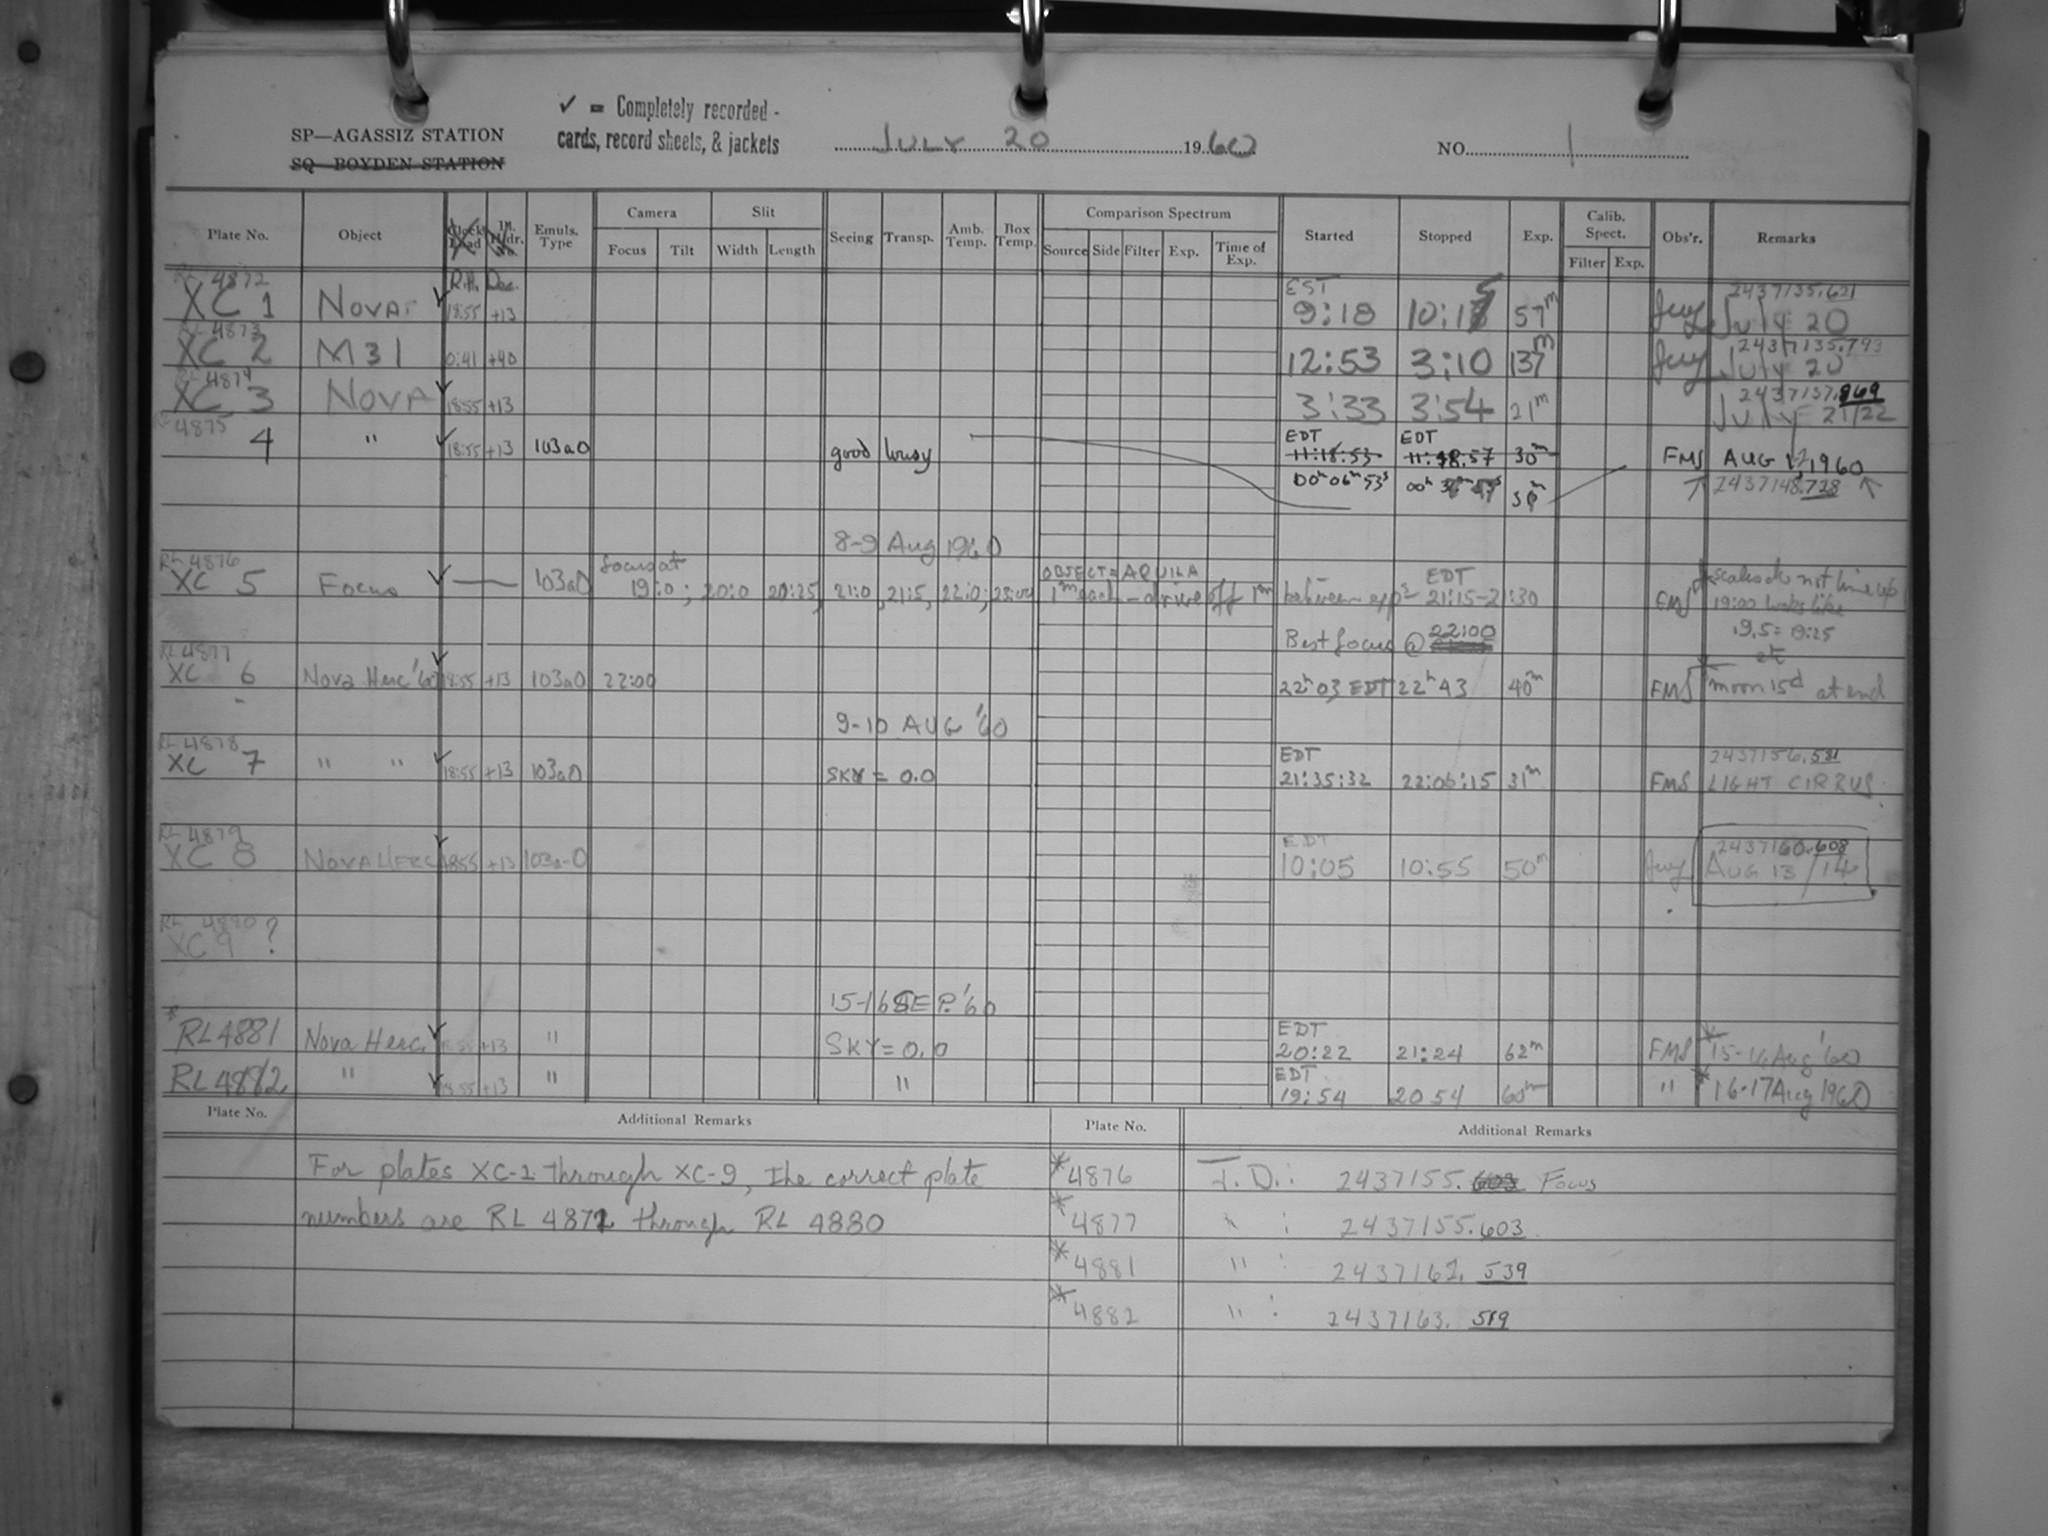 ✓ = Completely recorded -
cards, record sheets, & jackets
SP—AGASSIZ STATION
SQ—BOYDEN STATION
JULY 20 1960
NO. 1
Plate No. Object Clock Read Emuls. Type Camera Focus Tilt Slit Width Length Seeing Transp. Amb. Temp. Box Temp. Comparison Spectrum Source Side Filter Exp. Time of Exp. Started Stopped Exp. Calib. Spect. Filter Exp. Obs'r. Remarks
R.A. Dec.
RL 4872 EST 2437135.621
XC 1 NOVA ✓ 18:55 +13 9:18 10:15 57m JULY 20
RL 4873 2437135.793
XC 2 M31 0:41 +40 12:53 3:10 137m JULY 20
RL 4874 2437137.869
XC 3 NOVA ✓ 18:55 +13 3:33 3:54 21m JULY 21/22
RL 4875 EDT EDT
4 " ✓ 18:55 +13 103a0 good lousy 11:18:53 11:48:57 30m FMS AUG 1-2, 1960
00h 06m 53s 00h 2437148.728
8-9 Aug 1960
RL 4876 focus at OBJECT = AQUILA EDT scales do not line up
XC 5 Focus ✓ 103a0 19:0; 20:0 20:25, 21:0, 21:5, 22:0; 23:00 1m each - drive off 1m between exps 21:15-21:30 FMS 19:00 looks like
19.5 = 19:25
Best focus @ 22:00 etc
RL 4877
XC 6 Nova Herc '60 ✓ 18:55 +13 103a0 22:00 22h 03 EDT 22h 43 40m FMS moon 15d at end
9-10 AUG '60
RL 4878 EDT 2437156.581
XC 7 " " ✓ 18:55 +13 103a0 SKY = 0.0 21:35:32 22:06:15 31m FMS LIGHT CIRRUS
RL 4879 EDT 2437160.608
XC 8 NOVA HERC ✓ 18:55 +13 103a-0 10:05 10:55 50m AUG 13/14
RL 4880
XC 9 ?
15-16 SEP. '60
* EDT *
RL 4881 Nova Herc. ✓ 18:55 +13 " SKY = 0.0 20:22 21:24 62m FMS 15-16 Aug '60
EDT
RL 4882 " ✓ 18:55 +13 " " 19:54 20 54 60m " * 16-17 Aug 1960
Plate No. Additional Remarks Plate No. Additional Remarks
For plates XC-1 through XC-9, the correct plate
numbers are RL 4872 through RL 4880
*4876 J.D.: 2437155. Focus
*4877 " : 2437155.603
*4881 " : 2437162.539
*4882 " : 2437163.519